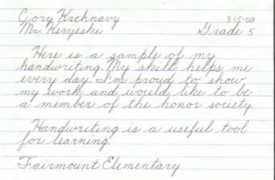 Cory Krchnavy 3-15-00
Mr. Kerzeski Grade 5
Here is a sample of my
handwriting. My skill helps me
every day. I'm proud to show
my work and would like to be
a member of the honor society.
Handwriting is a useful tool
for learning.
Fairmount Elementary